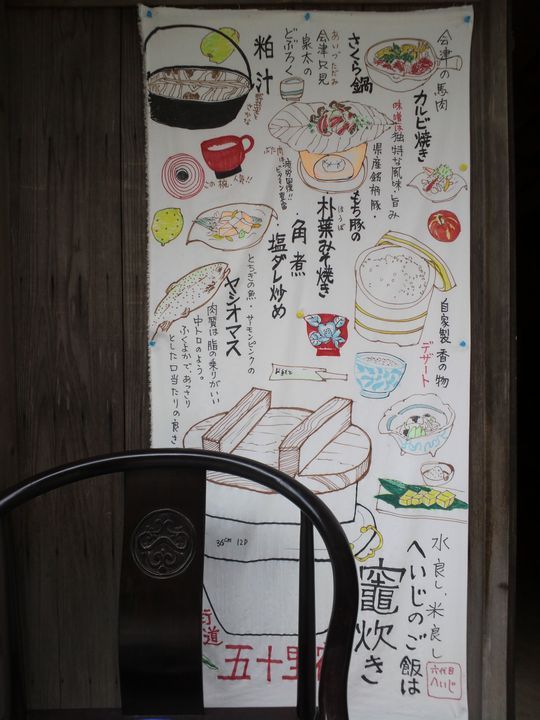 会津の馬肉
カルビ焼き
味噌は独特な風味・旨み
県産銘柄豚・
さくら鍋
もち豚の
ほうば
朴葉みそ焼き
・角煮
・塩ダレ炒め
あいづ・ただみ
会津只見
泉太の
どぶろく
粕汁
この椀、人気!!
ぶた肉は
疲労回復!!
ビタミン豊富
とちぎの魚・サーモンピンクの
ヤシオマス
肉質は脂の乗りがいい
中トロのよう。
ふくよかで、あっさり
とした口当たりの良さ
自家製
香の物
デザート
おてもと
36cm 12D
水良し、米良し
へいじのご飯は
竈炊き
六代目
へいじ
街道
五十里